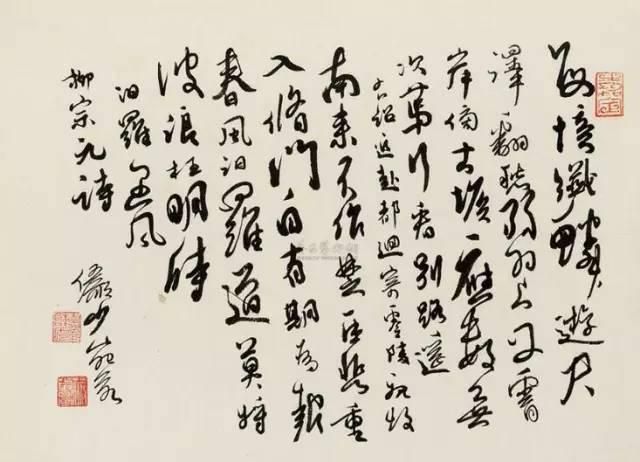 每憶纖鱗遊尺
澤翻愁弱羽上丹霄
岸傍古堠應無數
次第行看別路遙
右詔追赴都迴寄零陵親故
南來不作楚臣悲重
入脩門自有期為報
春風汨羅道莫將
波浪枉明時
汨羅遇風
柳宗元詩
儼少